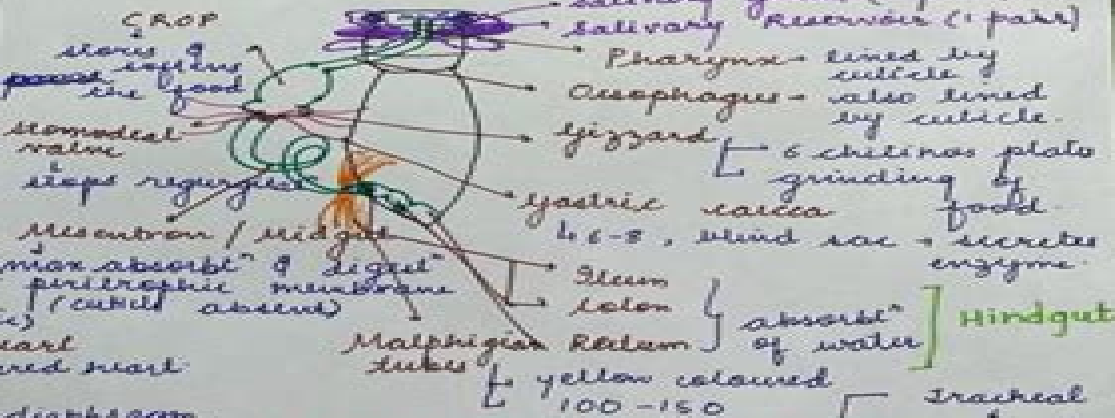 CROP
stores &
the food
stomodeal
valve
stops regurgita
Mesentron / Midgut
max absorbtⁿ & digestⁿ
peritrophic membrane
(cuticle absent)
salivary Reservoir (1 pair)
Pharynx → lined by
cuticle
Oesophagus → also lined
by cuticle.
Gizzard
6 chitinos plate
grinding of
food.
Gastric caeca
6-8, blind sac → secretes
enzyme.
Ileum
Colon
Rectum
absorbtⁿ
of water
Hindgut
Malphigian
tubes
yellow coloured
100-150
Tracheal
heart